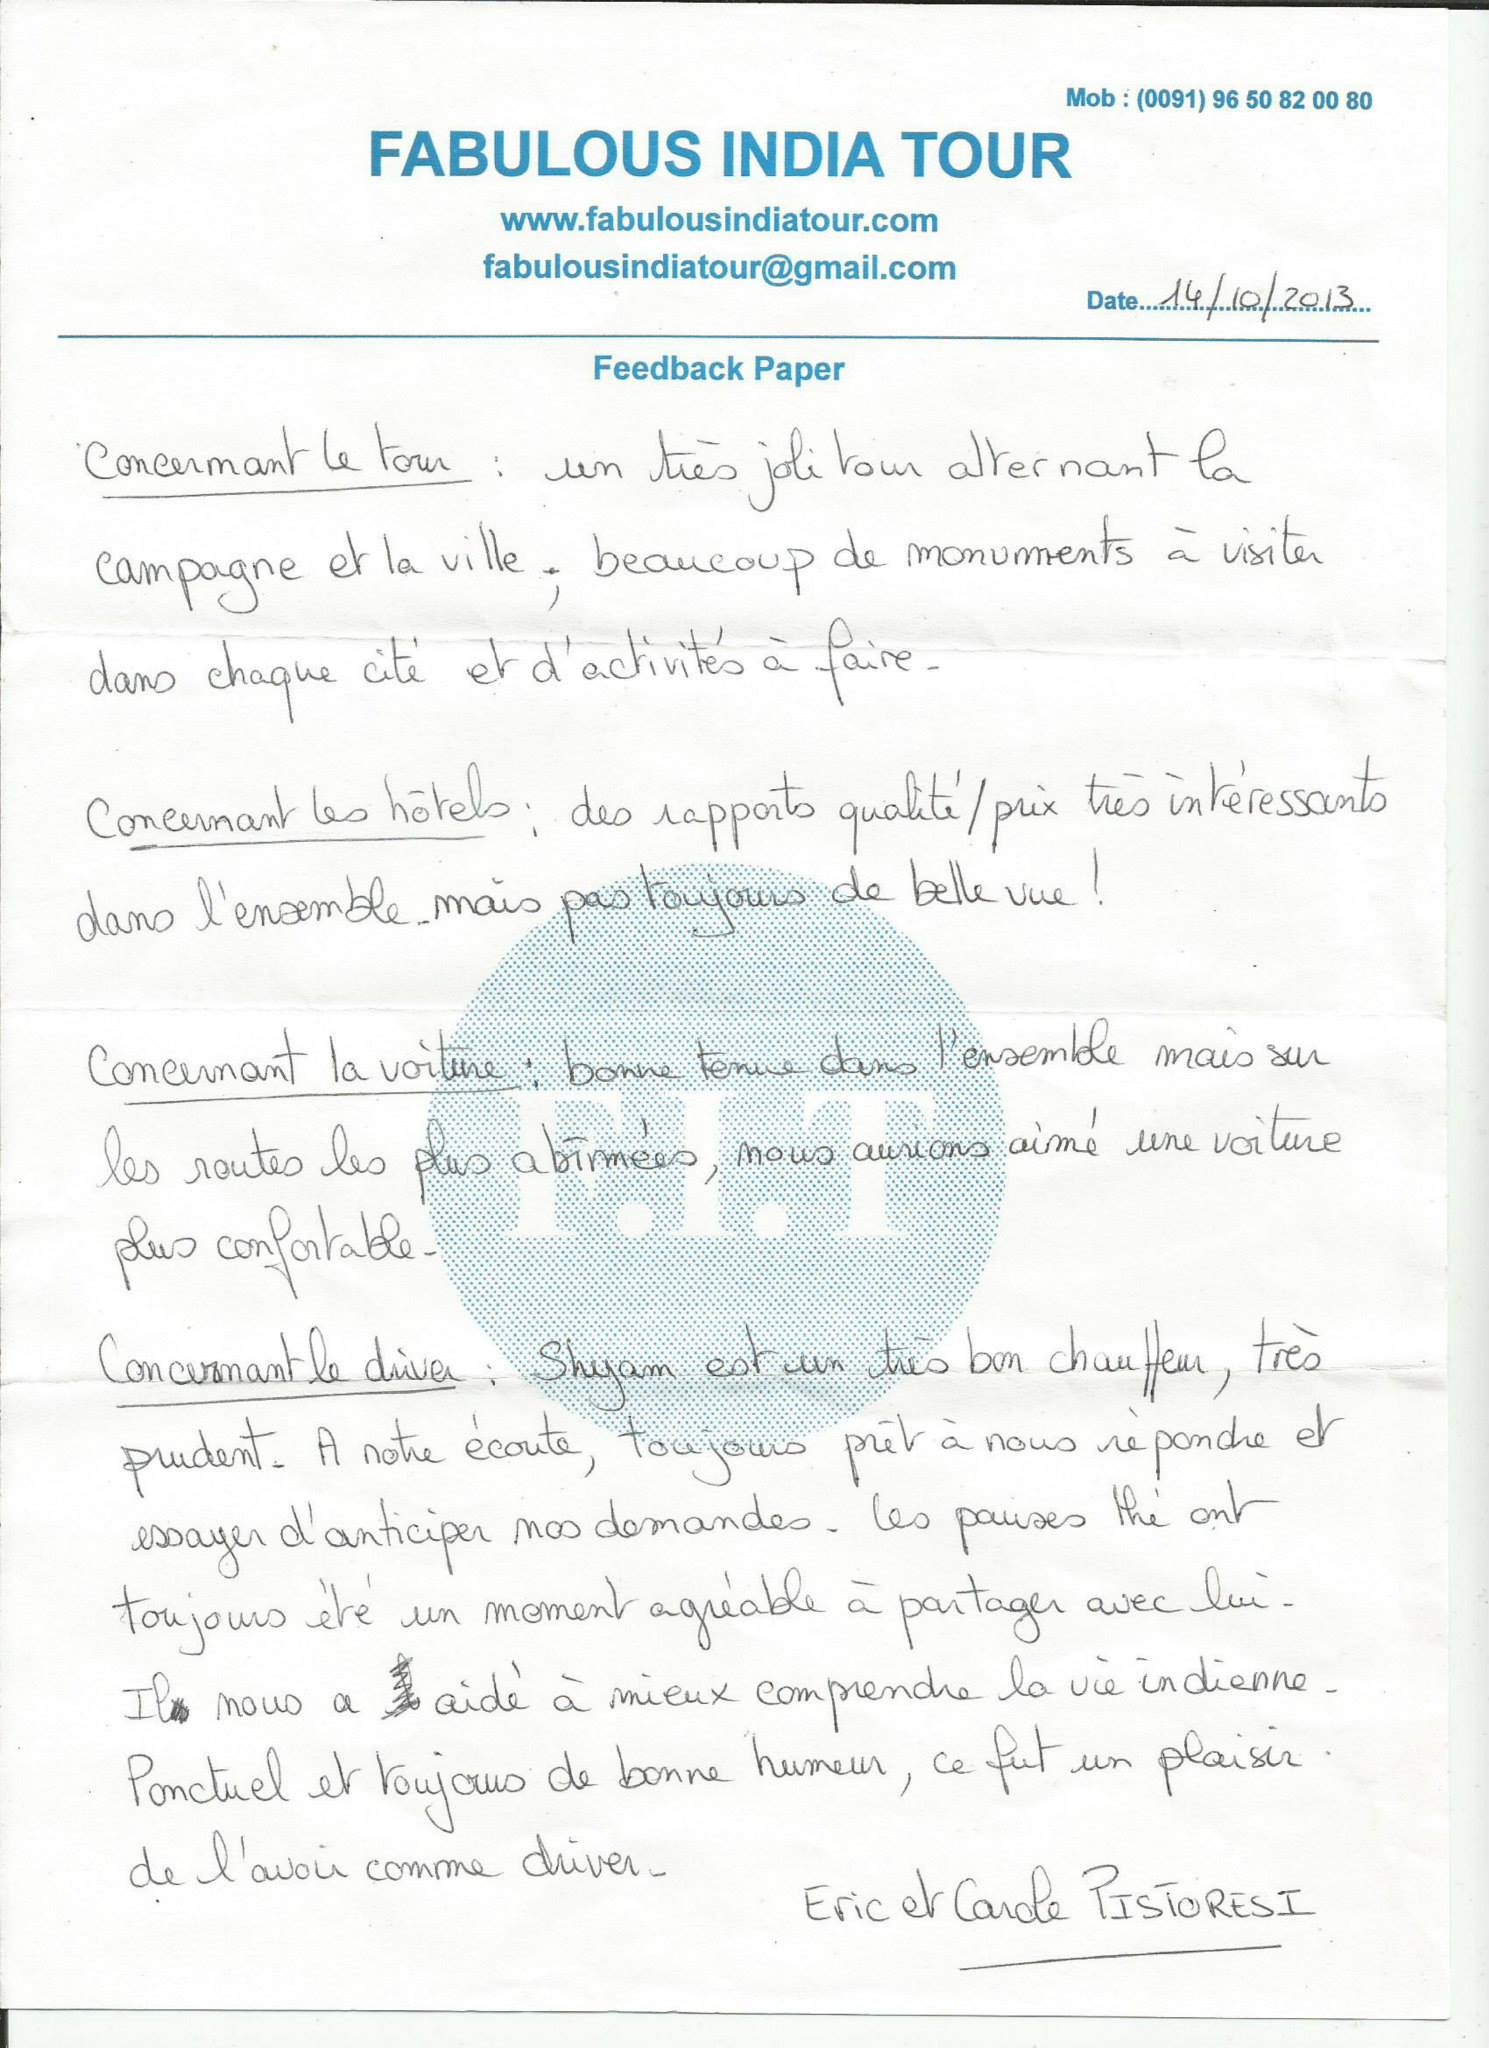 Mob : (0091) 96 50 82 00 80
FABULOUS INDIA TOUR
www.fabulousindiatour.com
fabulousindiatour@gmail.com
Date 14/10/2013
Feedback Paper
Concernant le tour : un très joli tour alternant la
campagne et la ville ; beaucoup de monuments à visiter
dans chaque cité et d'activités à faire.
Concernant les hôtels : des rapports qualité/prix très intéressants
dans l'ensemble mais pas toujours de belle vue !
Concernant la voiture : bonne tenue dans l'ensemble mais sur
les routes les plus abîmées, nous aurions aimé une voiture
plus confortable.
F.I.T
Concernant le driver : Shyam est un très bon chauffeur, très
prudent. A notre écoute, toujours prêt à nous répondre et
essayer d'anticiper nos demandes. Les pauses thé ont
toujours été un moment agréable à partager avec lui.
Il nous a aidé à mieux comprendre la vie indienne.
Ponctuel et toujours de bonne humeur, ce fut un plaisir
de l'avoir comme driver.
Eric et Carole PISTORESI